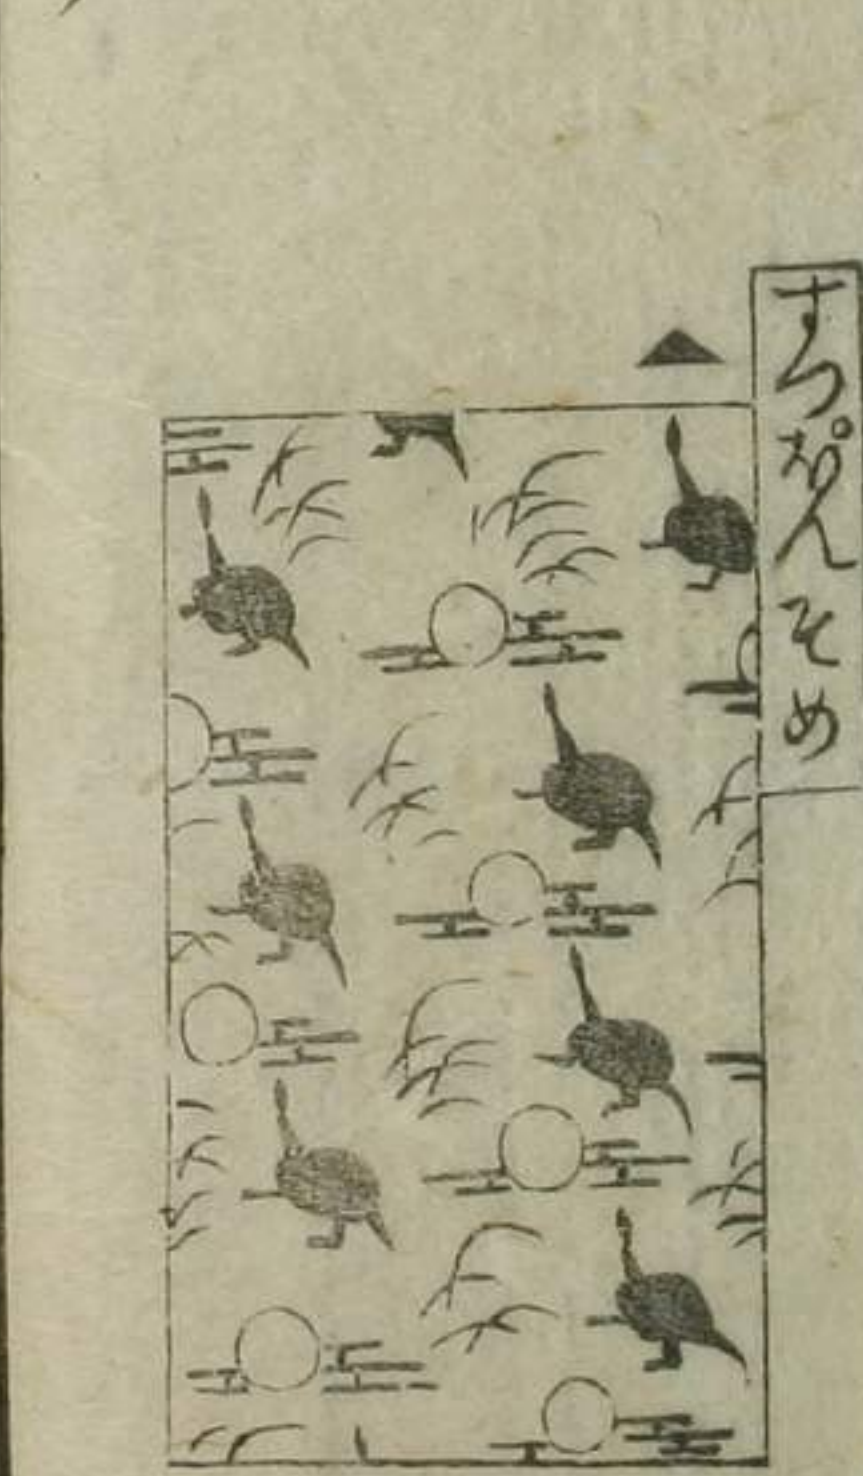 すつぽんそめ